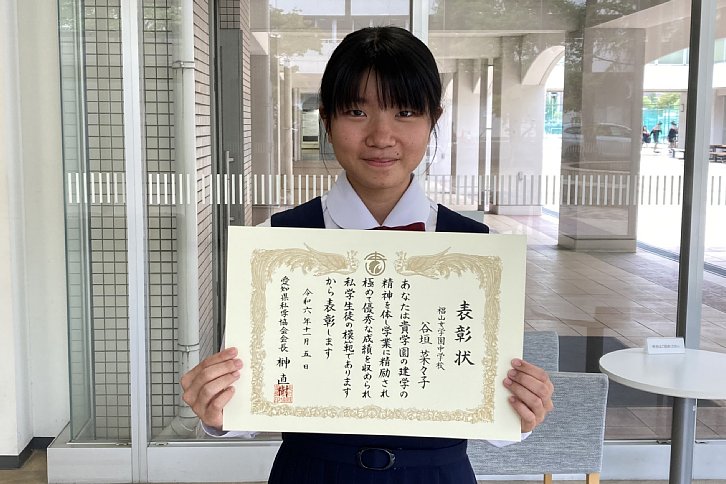 表彰状
椙山女学園中学校
谷垣 菜々子
あなたは貴学園の建学の
精神を体し学業に精励され
極めて優秀な成績を収められ
私学生徒の模範であります
から表彰します
令和六年十一月五日
愛知県私学協会会長 榊 直樹